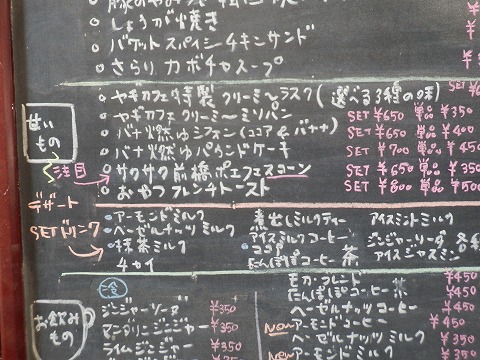 しょうが焼き
バケットスパイシーチキンサンド
さらりカボチャスープ
甘いもの
ヤギカフェ特製クリーミ〜ラスク(選べる3種の味) SET ¥650 単品 ¥350
ヤギカフェクリーミ〜ミツパン SET ¥650 単品 ¥400
バナ燃ゆシフォン(ココア&バナナ) SET ¥700 単品 ¥450
バナ燃ゆパウンドケーキ SET ¥650 単品 ¥350
注目
サクサク前橋ポエフェスコーン SET ¥800 単品 ¥500
おやつフレンチトースト
デザート
SETドリンク
アーモンドミルク 煮出しミルクティー アイスミントミルク
ヘーゼルナッツミルク アイスミルクコーヒー ジンジャーソーダ 各種
抹茶ミルク ココア アイスジャスミン茶
チャイ たんぽぽコーヒー
冷
お飲みもの
ジンジャーソーダ ¥350
マンダリンジンジャー ¥350
ライムジンジャー ¥350
モカブレンド ¥450
たんぽぽコーヒー ¥450
ヘーゼルナッツコーヒー ¥450
New アーモンドコーヒー ¥450
ヘーゼルナッツミルク ¥350
New アーモンドミルク ¥350